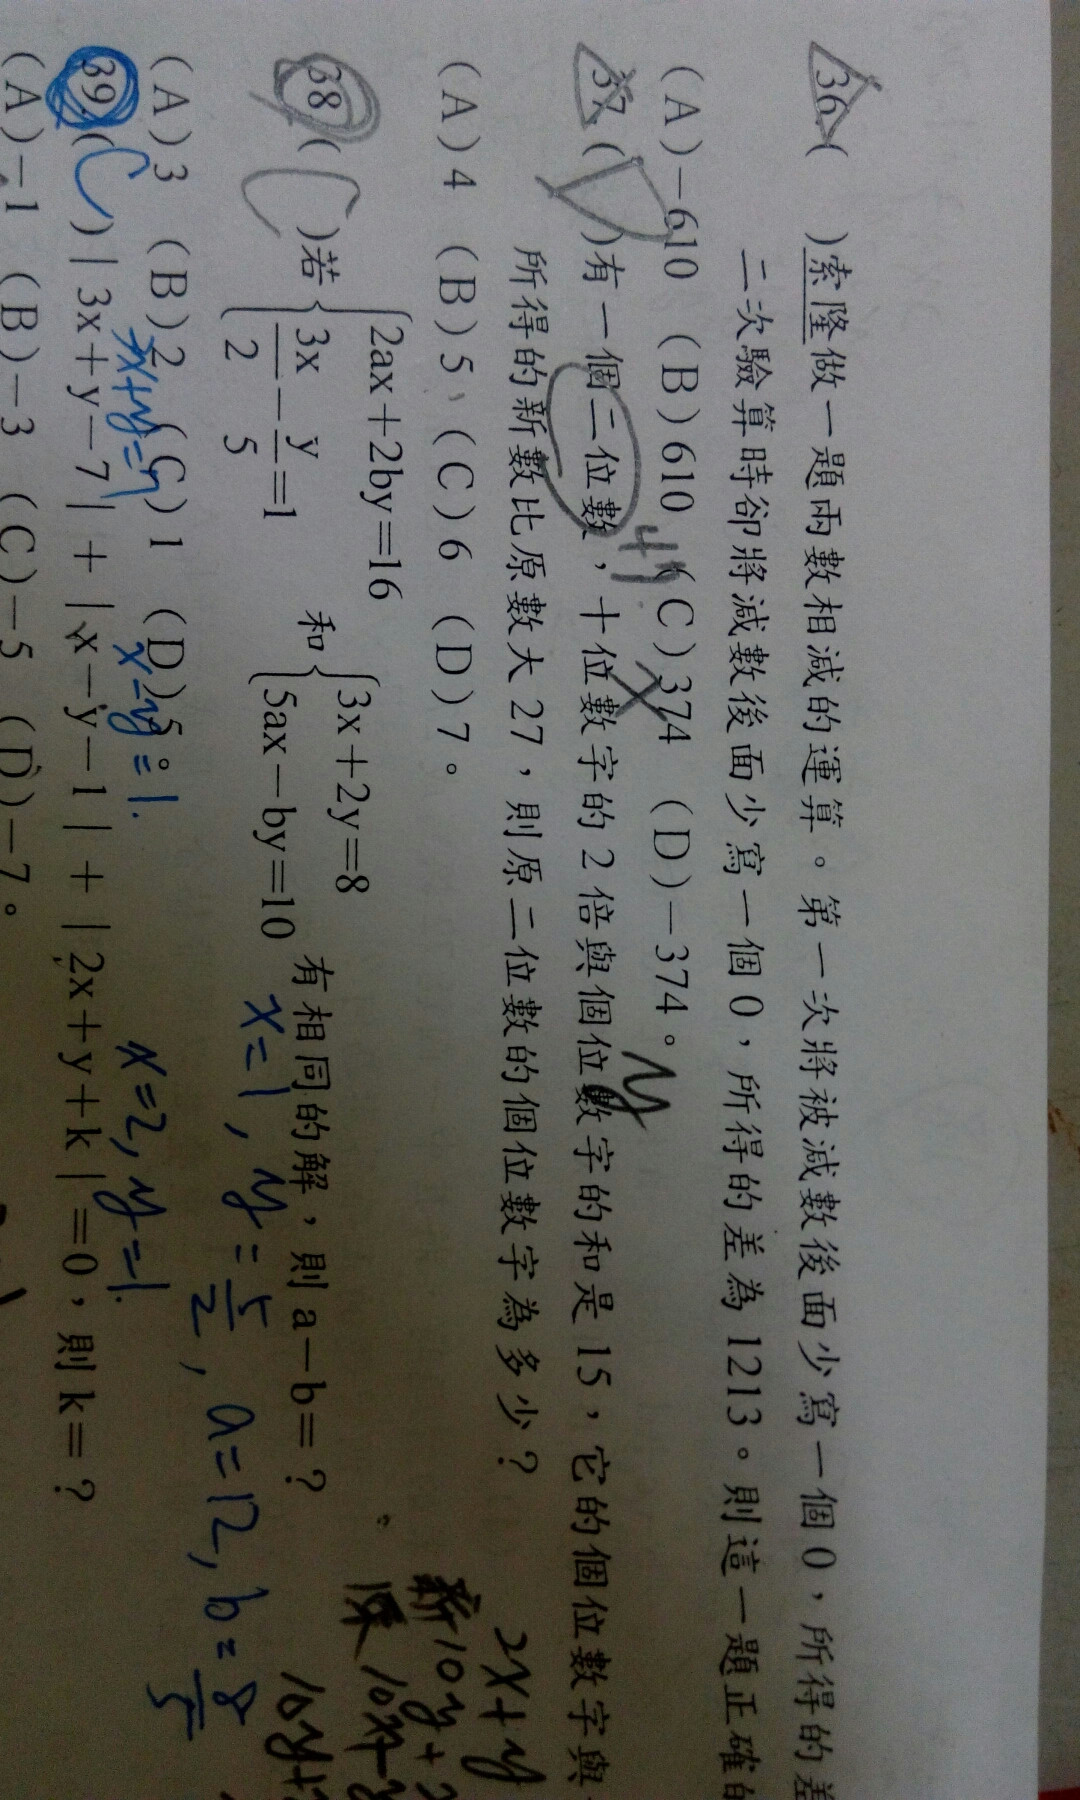 36.( )索隆做一題兩數相減的運算。第一次將被減數後面少寫一個0,所得的差
二次驗算時卻將減數後面少寫一個0,所得的差為1213。則這一題正確的
(A)-610 (B)610 (C)374 (D)-374。
37.( )有一個二位數,十位數字的2倍與個位數字的和是15,它的個位數字與
所得的新數比原數大27,則原二位數的個位數字為多少?
(A)4 (B)5 (C)6 (D)7。
38.( )若{2ax+2by=16 3x/2-y/5=1 和{3x+2y=8 5ax-by=10 有相同的解,則a-b=?
x=1, y=5/2, a=12, b=8/5
(A)3 (B)2 (C)1 (D)5。
3x+y=7 x-y=1. x=2, y=1.
39.(C)|3x+y-7|+|x-y-1|+|2x+y+k|=0,則k=?
(A)-1 (B)-3 (C)-5 (D)-7。
x
y
2x+y
新10y+
原10x+
10y+